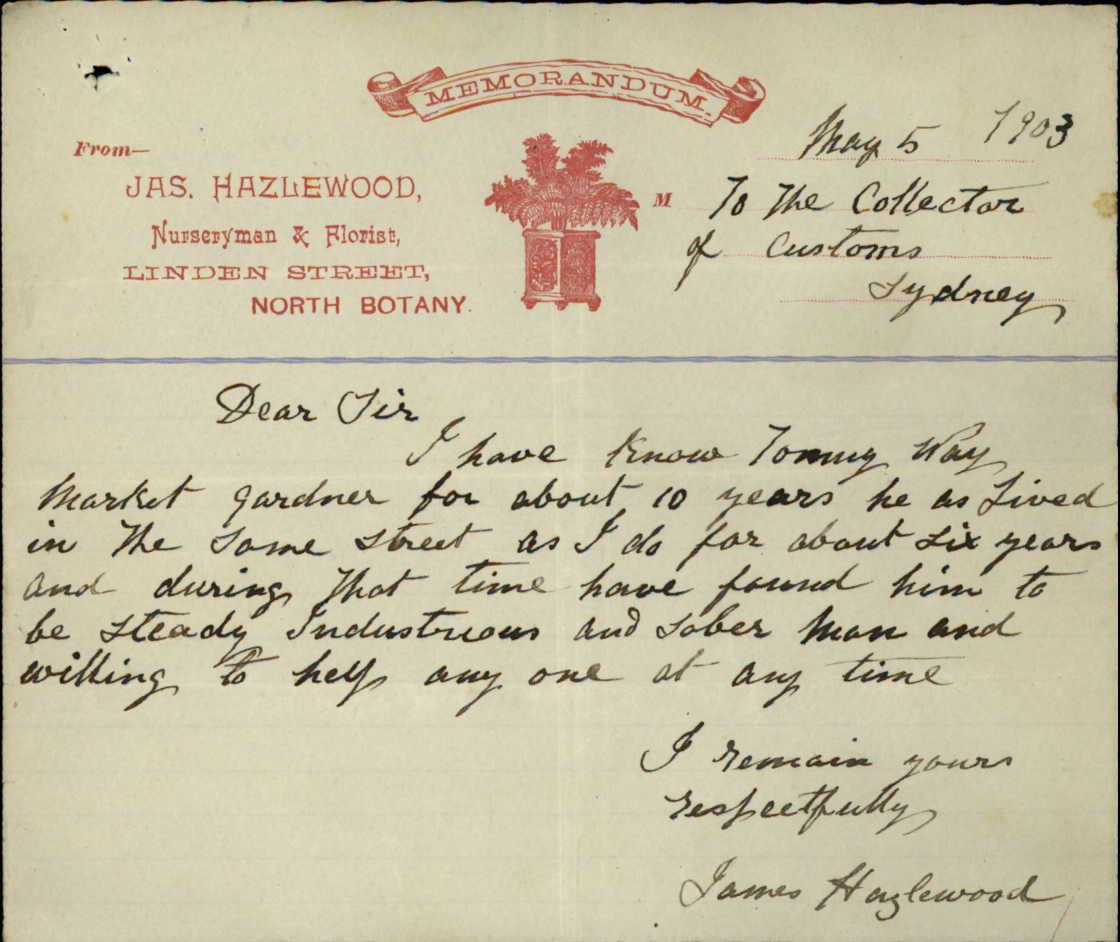 MEMORANDUM.
May 5 1903
From—
JAS. HAZLEWOOD,
Nurseryman & Florist,
LINDEN STREET,
NORTH BOTANY.
M To The Collector
of Customs
Sydney
Dear Sir
I have know Tommy Way
Market gardner for about 10 years he as Lived
in the same street as I do for about six years
and during that time have found him to
be steady Industrious and sober man and
willing to help any one at any time
I remain yours
respectfully
James Hazlewood